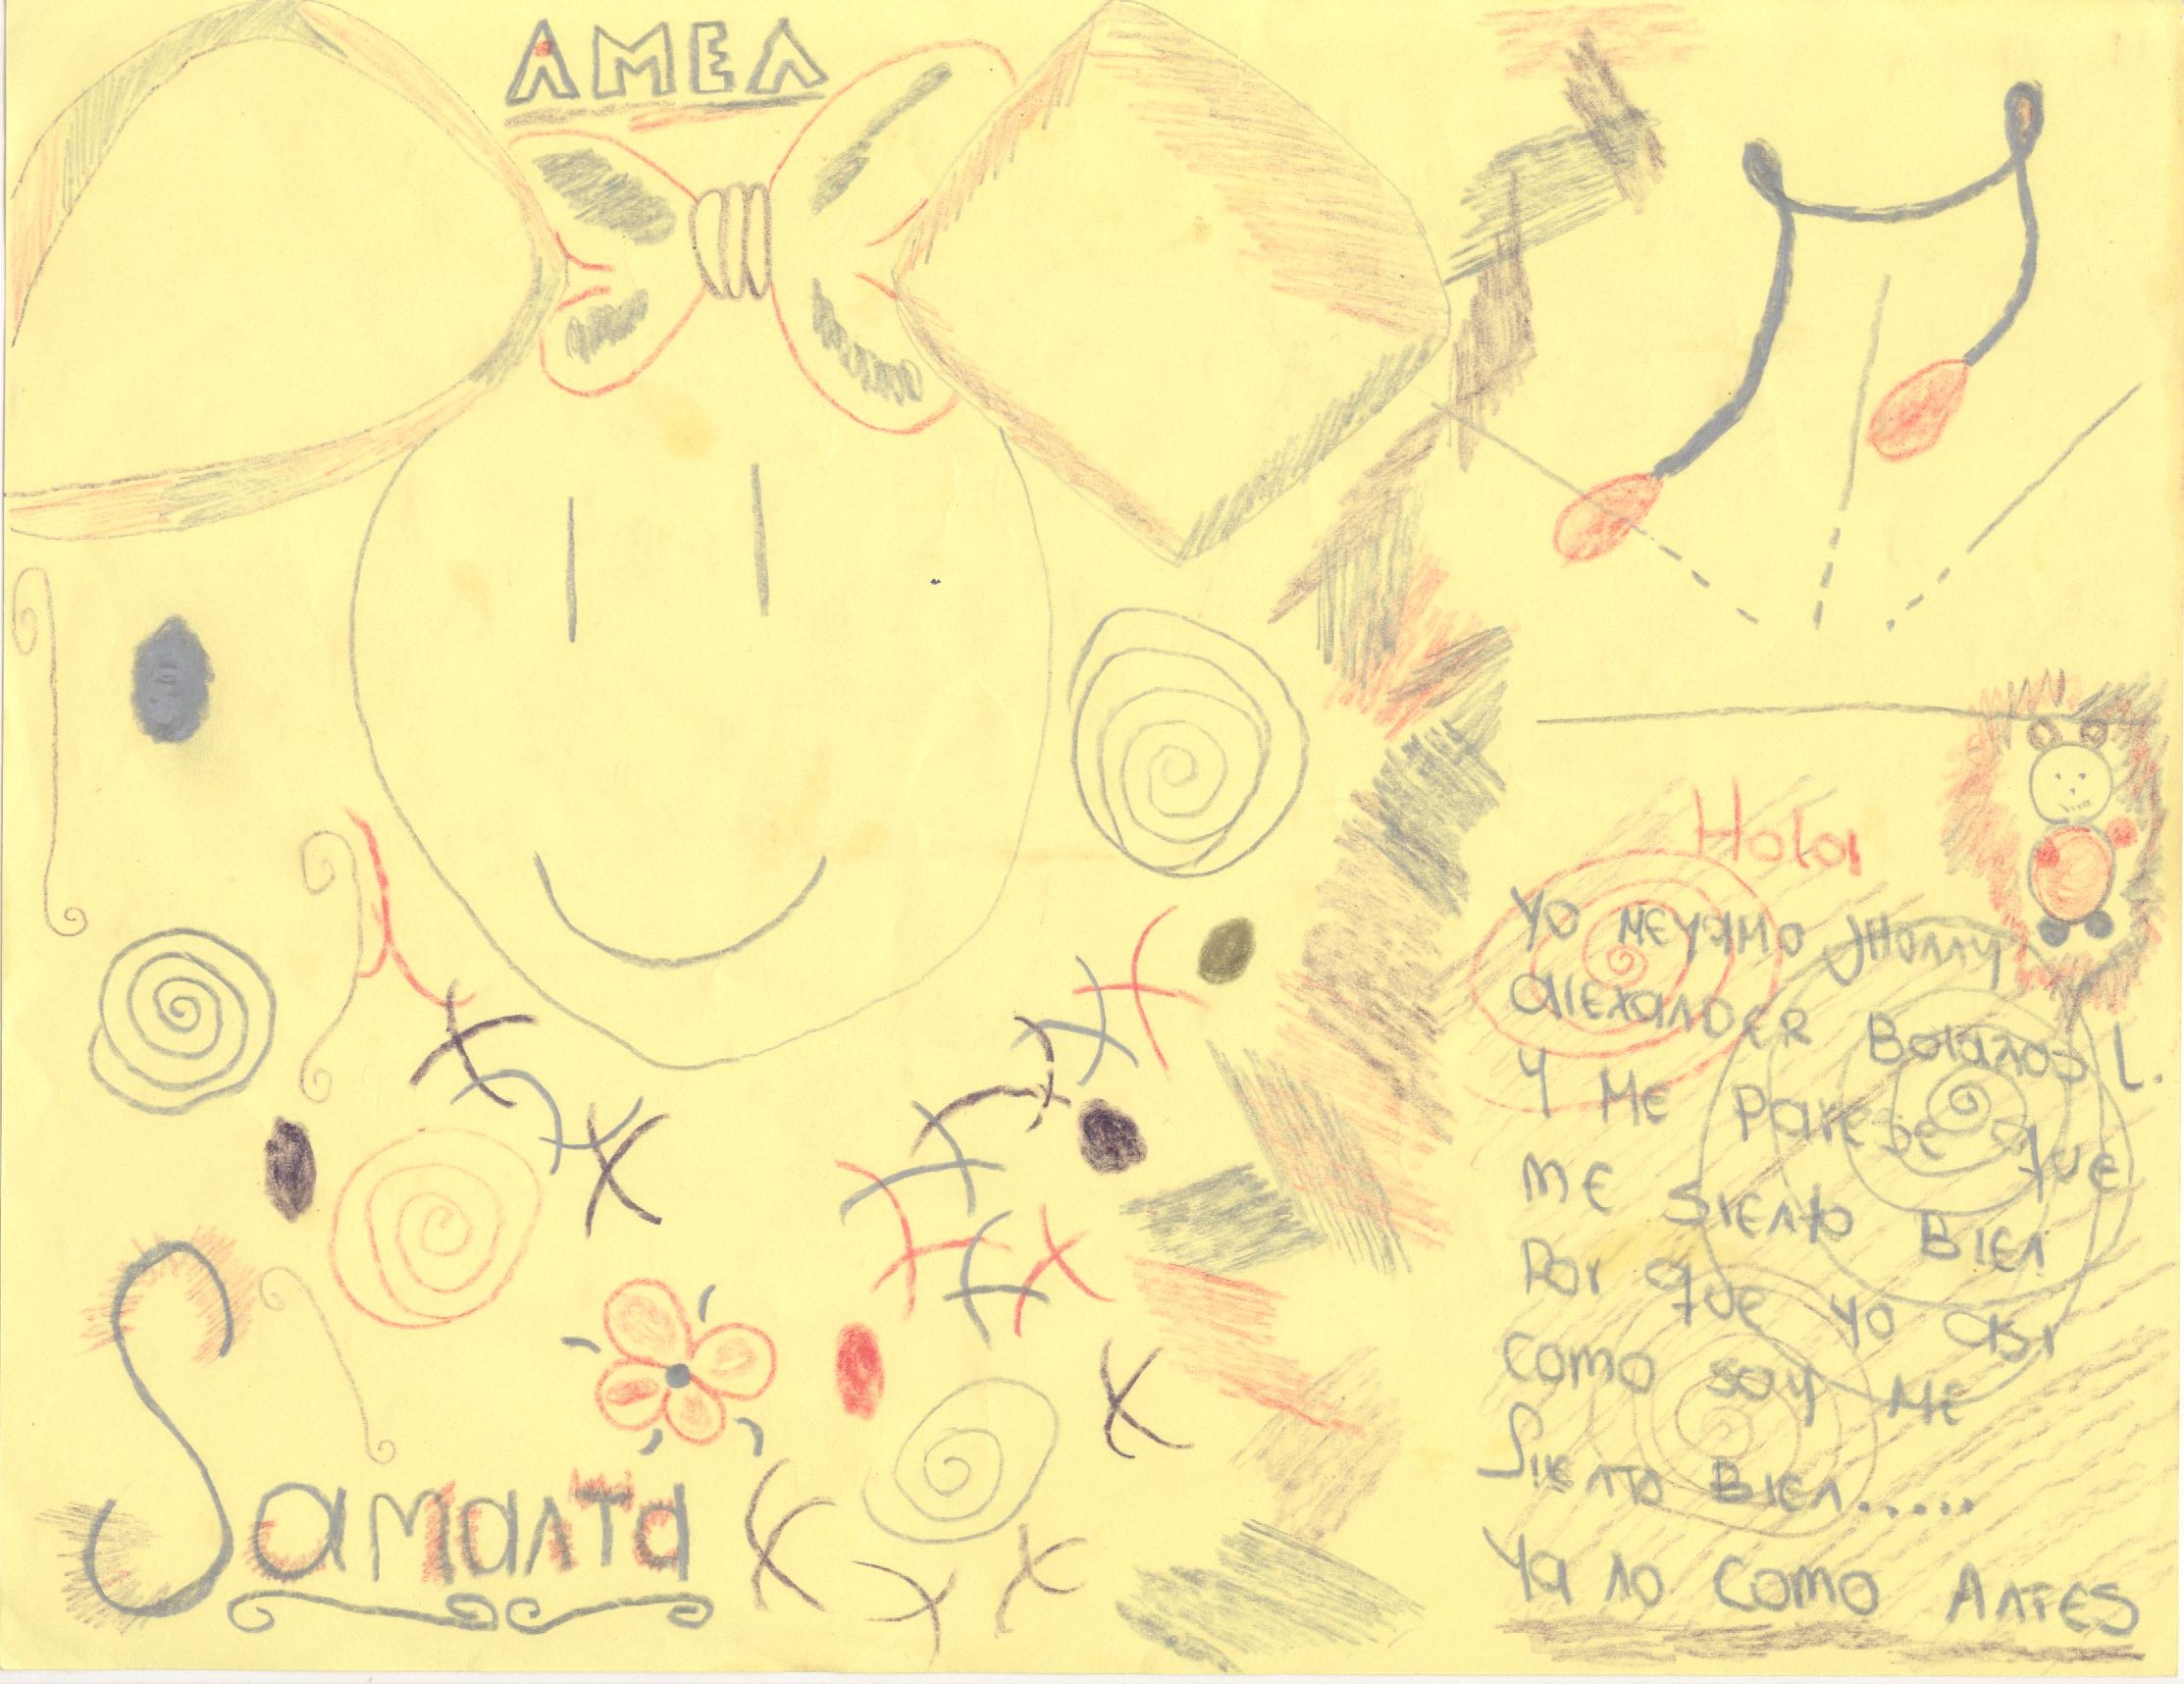 AMEN
Hola
YO MEYAMO JHONNY
alEXANDER BolaÑos L.
Y ME PareSe que
ME SIENto BIEN
Por que YO aSI
Como soy ME
SIENTO BIEN.....
Ya no como ANTES
SaMaNTa